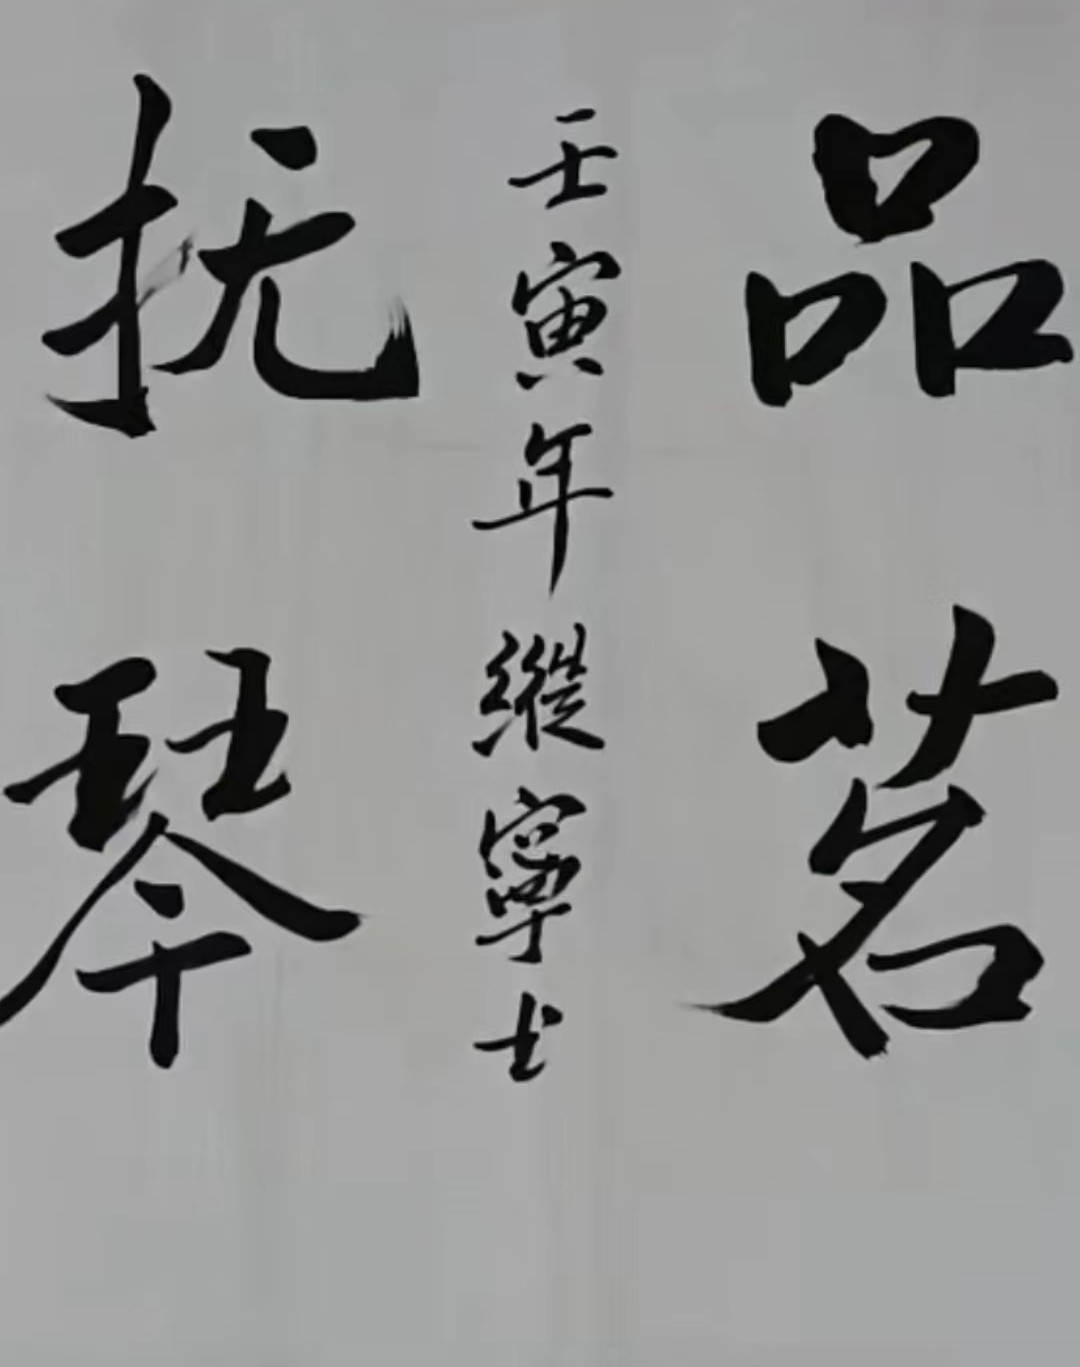 品茗
壬寅年縱寧士
抚琴